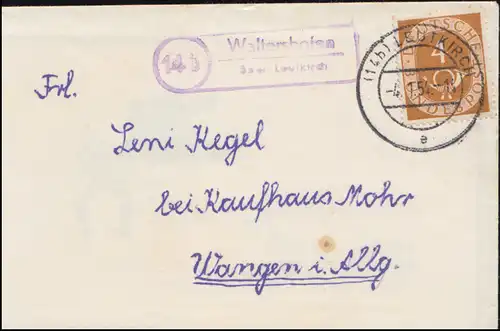 14b
Waltershofen
über Leutkirch
(14b) LEUTKIRCH
e
DEUTSCHE POST
4
Frl.
Leni Kegel
bei Kaufhaus Mohr
Wangen i. Allg.